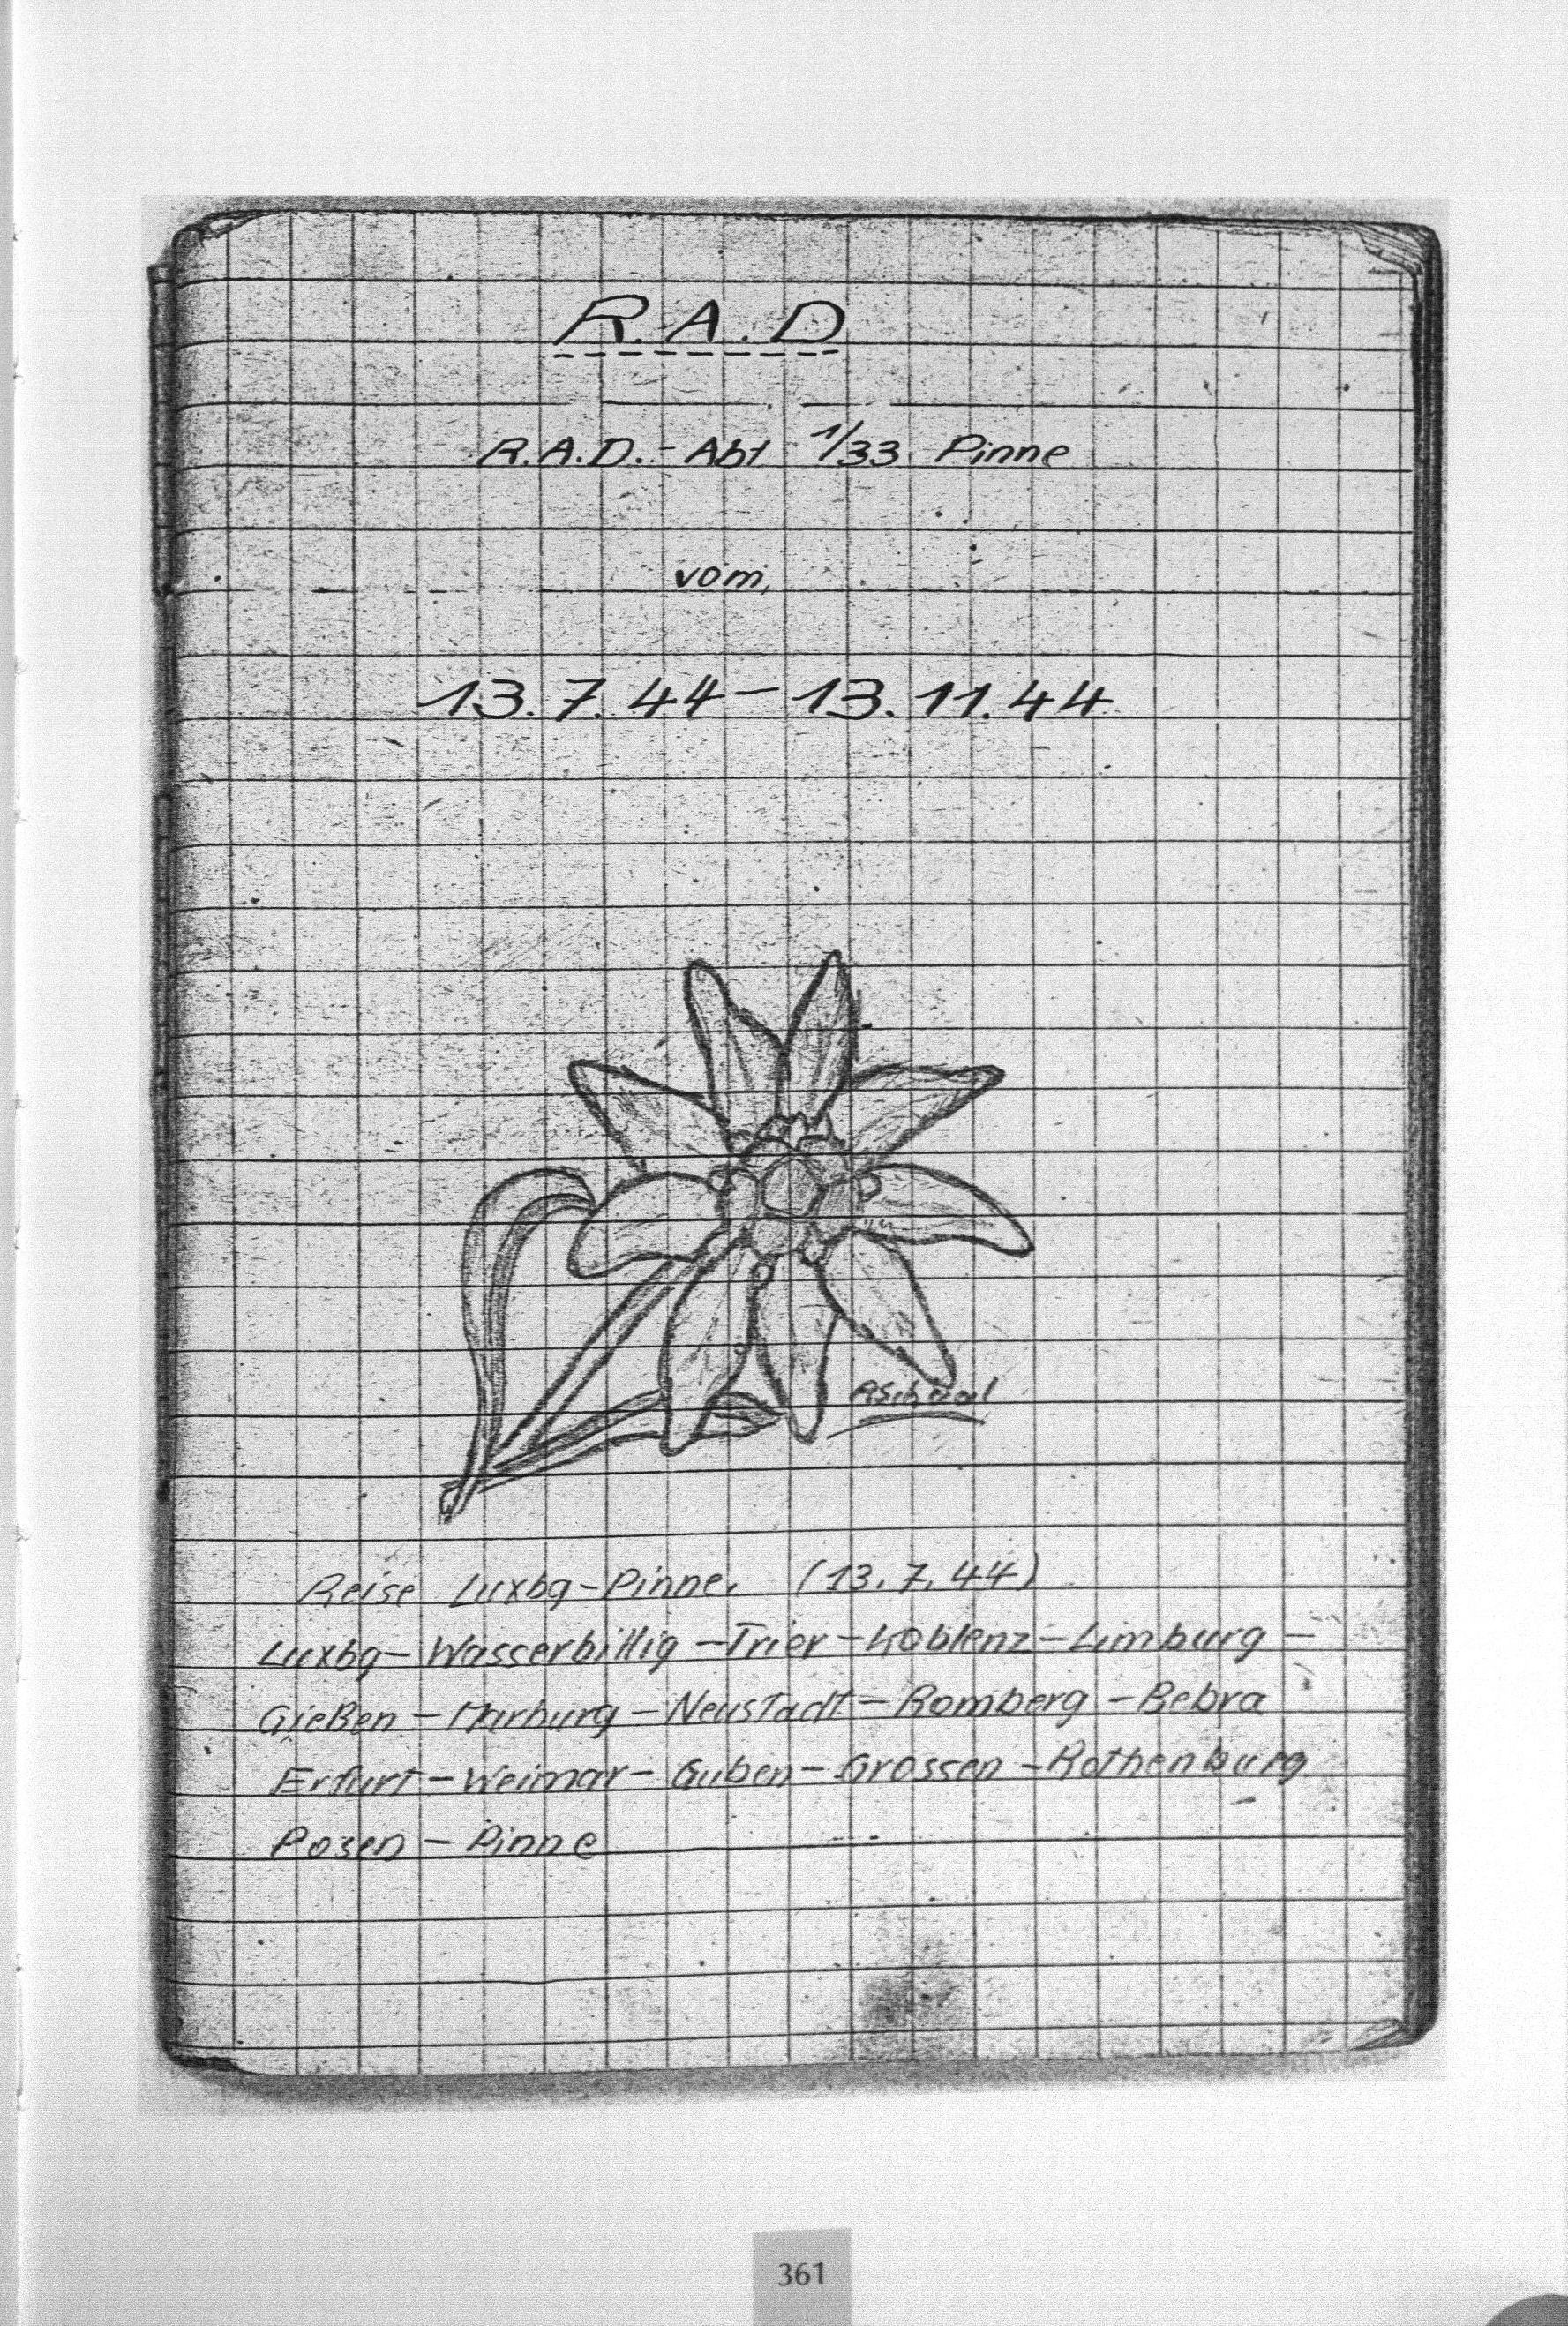 R.A.D
R.A.D.-Abt 1/33 Pinne
vom,
13.7.44-13.11.44
Reise Luxbg-Pinne. (13.7.44)
Luxbg-Wasserbillig-Trier-Koblenz-Limburg-
Gießen-Marburg-Neustadt-Bomberg-Bebra
Erfurt-Weimar-Guben-Grossen-Rothenburg
Posen-Pinne
361